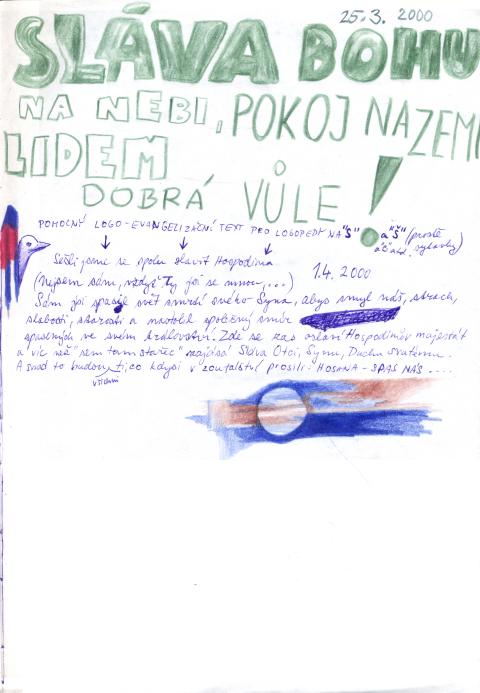 25.3. 2000
SLÁVA BOHU
NA NEBI, POKOJ NA ZEMI
LIDEM
DOBRÁ VŮLE!
POMOCNÝ LOGO-EVANGELIZAČNÍ TEXT PRO LOGOPEDY NA "S" a "Š" (prostě
sykavky)
Sešli jsme se spolu slavit Hospodina
(Nejsem sám, vždyť Ty jsi se mnou,...) 1.4. 2000
Sám jsi spasil svět smrtí svého Syna, abys smyl náš, strach,
slabosti, starosti a nastolil společný směr
spasených ve svém království. Zde se kas oslaní Hospodinův majestát
a víc než "sem tam stařec" zajásá Sláva Otci, Synu, Duchu svatému.
A snad to budou ti, co kdysi v zoufalství prosili: HOSANA - SPAS NÁS ....
všichni